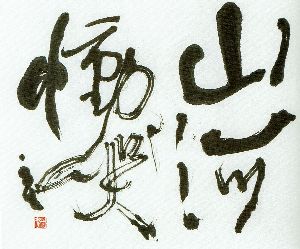 山河
慟哭